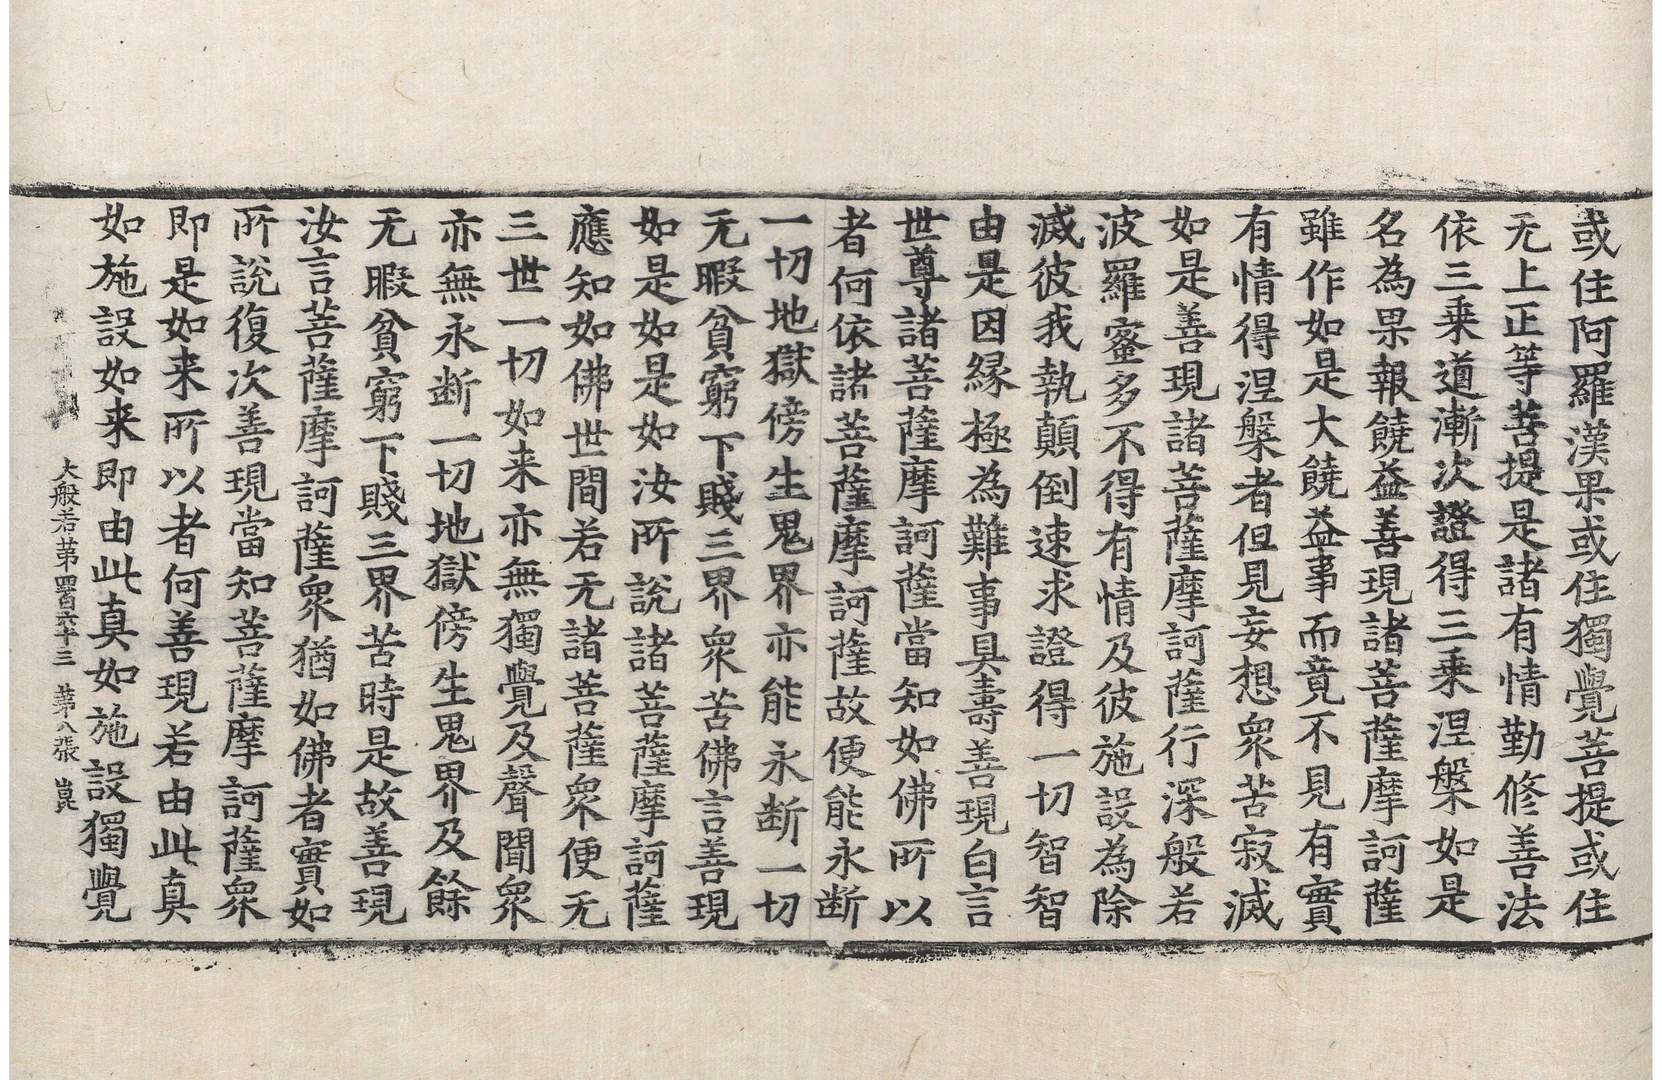 或住阿羅漢果或住獨覺菩提或住
无上正等菩提是諸有情勤修善法
依三乗道漸次證得三乗涅槃如是
名為果報饒益善現諸菩薩摩訶薩
雖作如是大饒益事而竟不見有實
有情得涅槃者但見妄想衆苦寂滅
如是善現諸菩薩摩訶薩行深般若
波羅蜜多不得有情及彼施設為除
滅彼我執顛倒速求證得一切智智
由是因緣極為難事具壽善現白言
世尊諸菩薩摩訶薩當知如佛所以
者何依諸菩薩摩訶薩故便能永断
一切地獄傍生鬼界亦能永断一切
无暇貧窮下賤三界衆苦佛言善現
如是如是如汝所說諸菩薩摩訶薩
應知如佛世間若无諸菩薩衆便无
三世一切如来亦無獨覺及聲聞衆
亦無永断一切地獄傍生鬼界及餘
无暇貧窮下賤三界苦時是故善現
汝言菩薩摩訶薩衆猶如佛者實如
所說復次善現當知菩薩摩訶薩衆
即是如来所以者何善現若由此真
如施設如来即由此真如施設獨覺
大般若第四百六十三 第八張 崑